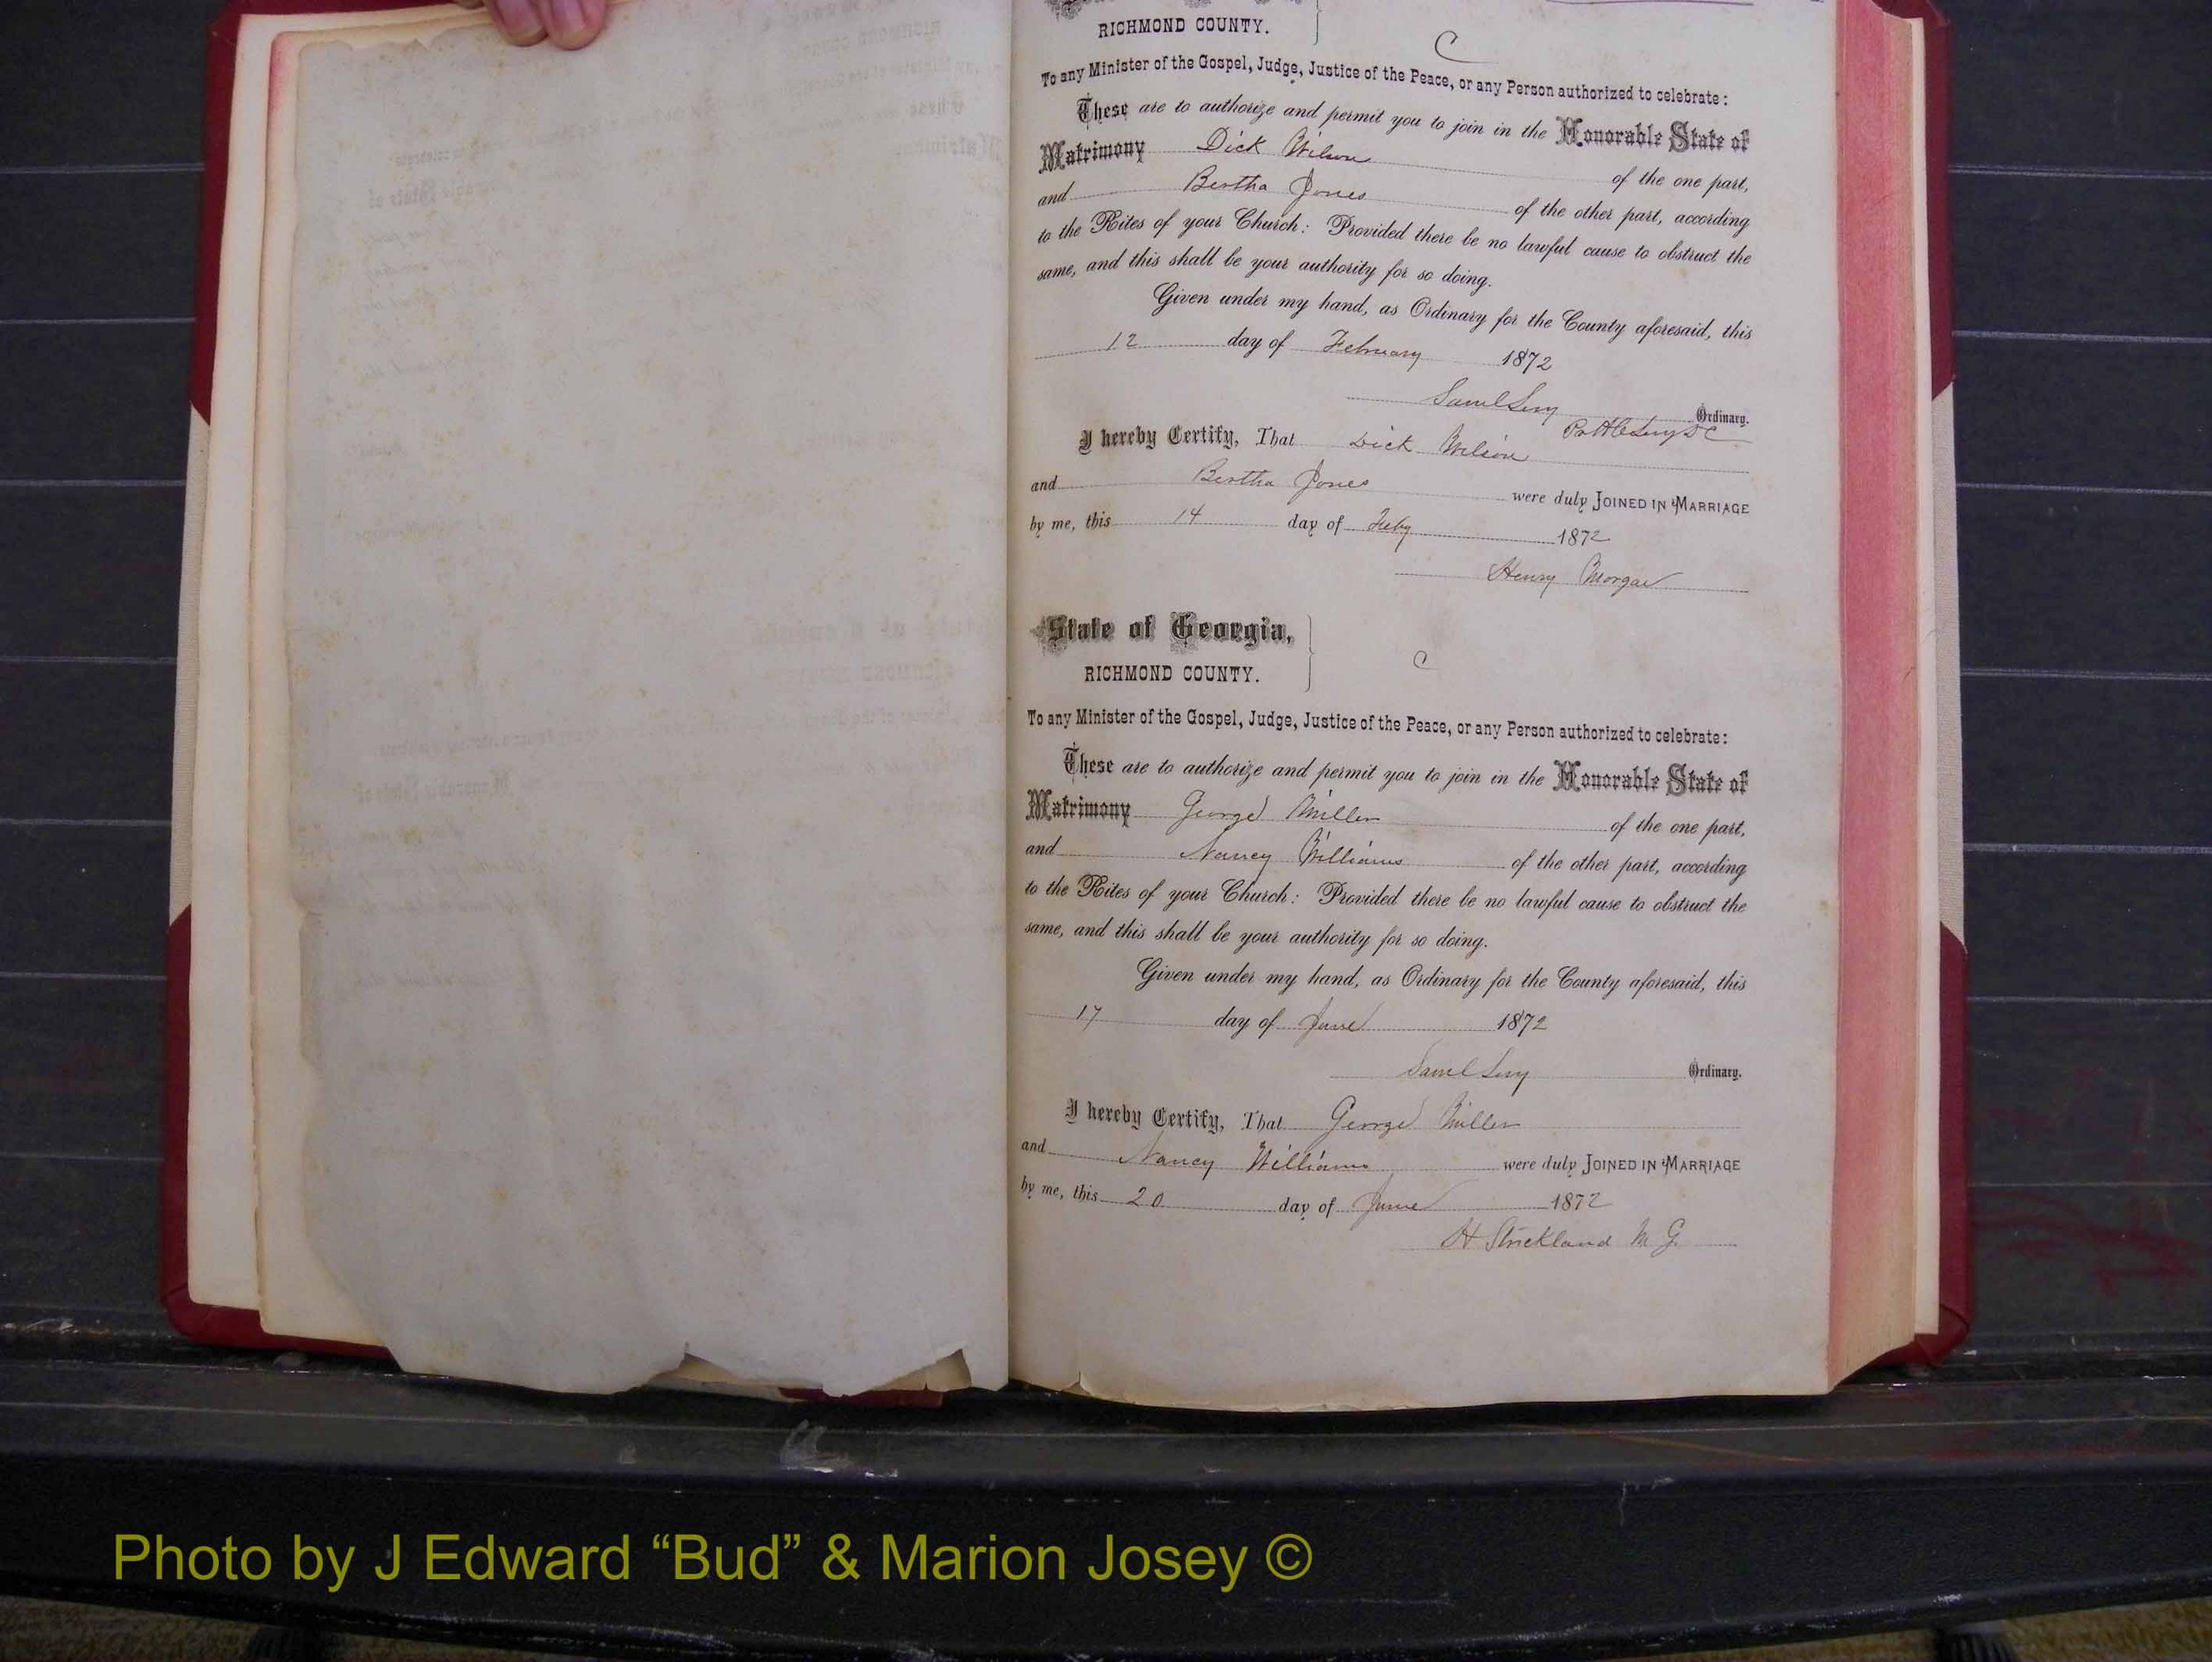 RICHMOND COUNTY.
C
To any Minister of the Gospel, Judge, Justice of the Peace, or any Person authorized to celebrate:
These are to authorize and permit you to join in the Honorable State of
Matrimony Dick Wilson of the one part,
and Bertha Jones of the other part, according
to the Rites of your Church: Provided there be no lawful cause to obstruct the
same, and this shall be your authority for so doing.
Given under my hand, as Ordinary for the County aforesaid, this
12 day of February 1872
Saml Levy Ordinary.
I hereby Certify, That Dick Wilson
and Bertha Jones were duly JOINED IN MARRIAGE
by me, this 14 day of Feby 1872
Henry Morgan
State of Georgia,
RICHMOND COUNTY.
C
To any Minister of the Gospel, Judge, Justice of the Peace, or any Person authorized to celebrate:
These are to authorize and permit you to join in the Honorable State of
Matrimony George Miller of the one part,
and Nancy Williams of the other part, according
to the Rites of your Church: Provided there be no lawful cause to obstruct the
same, and this shall be your authority for so doing.
Given under my hand, as Ordinary for the County aforesaid, this
17 day of June 1872
Saml Levy Ordinary.
I hereby Certify, That George Miller
and Nancy Williams were duly JOINED IN MARRIAGE
by me, this 20 day of June 1872
H Strickland M G.
Photo by J Edward “Bud” & Marion Josey ©